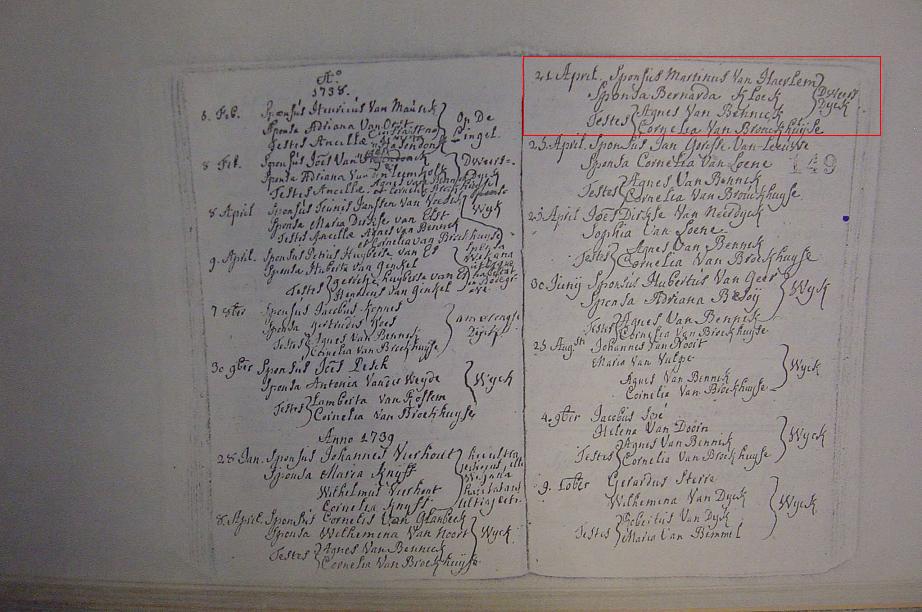 Aº
1738.
8. Feb. Sponsus Henricus Van Maurick
Sponsa Adriana Van Oort
Testes Ancillæ
Op De Cingel.
8 Feb. Sponsus Joës Van
Sponsa Adriana Van
Testes Ancillæ Agnes van Bennick
et Cornelia Broeckhuyse
Dweers= Dyck
8 April Sponsus Teunis Janssen Van
Sponsa Maria Dirkse van Elst
Testes Ancillæ Agnes van Bennick
et Cornelia van Broeckhuyse
Wyk
9. April. Sponsus Petrus Huyberse van Es
Sponsa Huberta van Ginkel
Testes Gerichje huyberse van Es
Henricus van Ginkel
Sponsa
7 8ter Sponsus Jacobus Koppes
Sponsa Gertrudis Koes
Testes Agnes Van Bennick
Cornelia Van Broekhuyse
amerongse
30 9ber Sponsus Joës Pesch
Sponsa Antonia Vander Weyde
Testes Lamberta van Rossem
Cornelia Van Broekhuyse
Wyck
Anno 1739
28 Jan. Sponsus Johannes Vierhout
Sponsa Maria Knyff
Wilhelmus Vierhout
Cornelia Knyff
8. April. Sponsus Cornelis Van Glanbeck
Sponsa Wilhemena Van Noort
Testes Agnes Van Benneck
Cornelia Van Broekhuyse
Wyck
21 April. Sponsus Martinus Van Haerlem
Sponsa Bernarda Kloek
Testes Agnes Van Bennick
Cornelia Van Broeckhuyse
Dweers Dyck
149
25 April. Sponsus Jan Gerisse Van Leeuwe
Sponsa Cornelia Van Loene
Testes Agnes Van Bennick
Cornelia Van Broeckhuyse
25 April Joes Dirkse Van Neerdyck
Sophia Van Loene
Testes Agnes Van Bennick
Cornelia Van Broekhuyse
30 Junij Sponsus Hubertus Van Geer
Sponsa Adriana Besoij
Testes Agnes Van Bennick
Cornelia Van Broekhuyse
Wyck
25 Augsti Johannes Van Nooit
Maria Van Vulpe
Agnes Van Bennick
Cornelia Van Broekhuyse
Wyck
4. 9ber Jacobus
Helena Van Doorn
Testes Agnes Van Bennick
Cornelia Van Broekhuyse
Wyck
9. 10ber Gerardus Sterre
Wilhemena Van Dyck
Testes Robertus Van Dyck
Maria Van Bemmel
Wyck